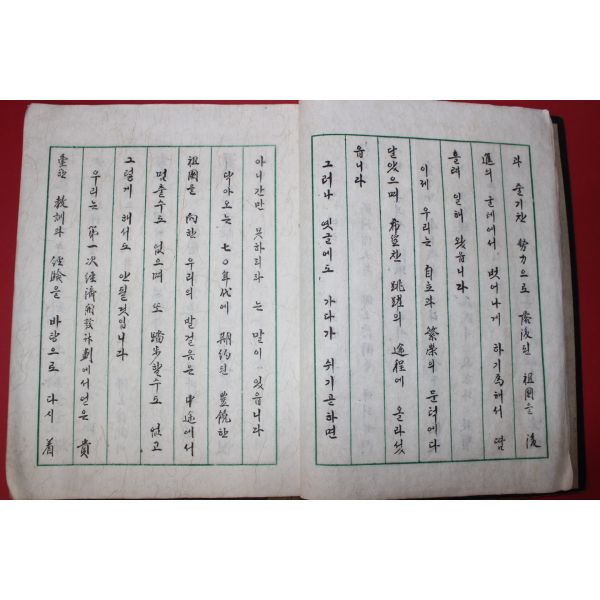 과 줄기찬 努力으로 落後된 祖國을 後
進의 굴레에서 벗어나게 하기 爲해서 땀
흘려 일해 왔읍니다
이제 우리는 自立과 繁榮의 문턱에다
달았으며 希望찬 跳躍의 途程에 올라섯
읍니다
그러나 옛글에도 가다가 쉬기곧하면
아니간만 못하리라 는 말이 있읍니다
닥아오는 七○年代에 期約된 豊饒한
祖國을 向한 우리의 발걸음은 中途에서
멈출수도 없으며 또 踏步할수도 없고
그렇게 해서도 안될것입니다
우리는 第一次經濟開發計劃에서 얻은 貴
重한 敎訓과 經驗을 바탕으로 다시 着